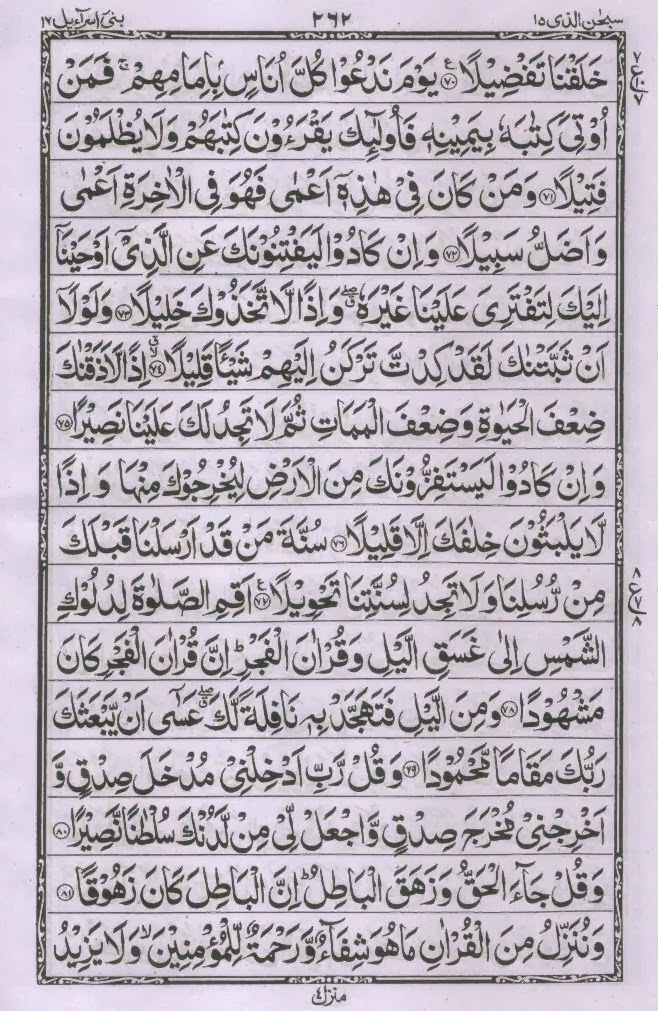 سبحٰن الذی ١٥ ٢٦٢ بنیٓ اسرآءیل ١٧
خَلَقْنَا تَفْضِيْلًا ۧ‏﴿٧٠﴾ يَوْمَ نَدْعُوْا كُلَّ اُنَاسٍۭ بِاِمَامِهِمْ ۚ فَمَنْ
اُوْتِیَ كِتٰبَهٗ بِيَمِيْنِهٖ فَاُولٰٓئِكَ يَقْرَءُوْنَ كِتٰبَهُمْ وَلَا يُظْلَمُوْنَ
فَتِيْلًا ﴿٧١﴾ وَمَنْ كَانَ فِیْ هٰذِهٖٓ اَعْمٰى فَهُوَ فِی الْاٰخِرَةِ اَعْمٰى
وَاَضَلُّ سَبِيْلًا ﴿٧٢﴾ وَاِنْ كَادُوْا لَيَفْتِنُوْنَكَ عَنِ الَّذِیْٓ اَوْحَيْنَآ
اِلَيْكَ لِتَفْتَرِیَ عَلَيْنَا غَيْرَهٗ ۖ ق وَاِذًا لَّاتَّخَذُوْكَ خَلِيْلًا ﴿٧٣﴾ وَلَوْلَآ
اَنْ ثَبَّتْنٰكَ لَقَدْ كِدْتَّ تَرْكَنُ اِلَيْهِمْ شَيْـًٔا قَلِيْلًا ﴿٧٤﴾ اِذًا لَّاَذَقْنٰكَ
ضِعْفَ الْحَيٰوةِ وَضِعْفَ الْمَمَاتِ ثُمَّ لَا تَجِدُ لَكَ عَلَيْنَا نَصِيْرًا ﴿٧٥﴾
وَاِنْ كَادُوْا لَيَسْتَفِزُّوْنَكَ مِنَ الْاَرْضِ لِيُخْرِجُوْكَ مِنْهَا وَاِذًا
لَّا يَلْبَثُوْنَ خِلٰفَكَ اِلَّا قَلِيْلًا ﴿٧٦﴾ سُنَّةَ مَنْ قَدْ اَرْسَلْنَا قَبْلَكَ
مِنْ رُّسُلِنَا وَلَا تَجِدُ لِسُنَّتِنَا تَحْوِيْلًا ۧ‏﴿٧٧﴾ اَقِمِ الصَّلٰوةَ لِدُلُوْكِ
الشَّمْسِ اِلٰى غَسَقِ الَّيْلِ وَقُرْاٰنَ الْفَجْرِ ؕ اِنَّ قُرْاٰنَ الْفَجْرِ كَانَ
مَشْهُوْدًا ﴿٧٨﴾ وَمِنَ الَّيْلِ فَتَهَجَّدْ بِهٖ نَافِلَةً لَّكَ ۖ ق عَسٰٓى اَنْ يَّبْعَثَكَ
رَبُّكَ مَقَامًا مَّحْمُوْدًا ﴿٧٩﴾ وَقُلْ رَّبِّ اَدْخِلْنِیْ مُدْخَلَ صِدْقٍ وَّ
اَخْرِجْنِیْ مُخْرَجَ صِدْقٍ وَّاجْعَلْ لِّیْ مِنْ لَّدُنْكَ سُلْطٰنًا نَّصِيْرًا ﴿٨٠﴾
وَقُلْ جَآءَ الْحَقُّ وَزَهَقَ الْبَاطِلُ ؕ اِنَّ الْبَاطِلَ كَانَ زَهُوْقًا ﴿٨١﴾
وَنُنَزِّلُ مِنَ الْقُرْاٰنِ مَا هُوَ شِفَآءٌ وَّرَحْمَةٌ لِّلْمُؤْمِنِيْنَ ۙ وَلَا يَزِيْدُ
منزل ٤
٧
ع ١٠
٧
٨
ع ٧
٨